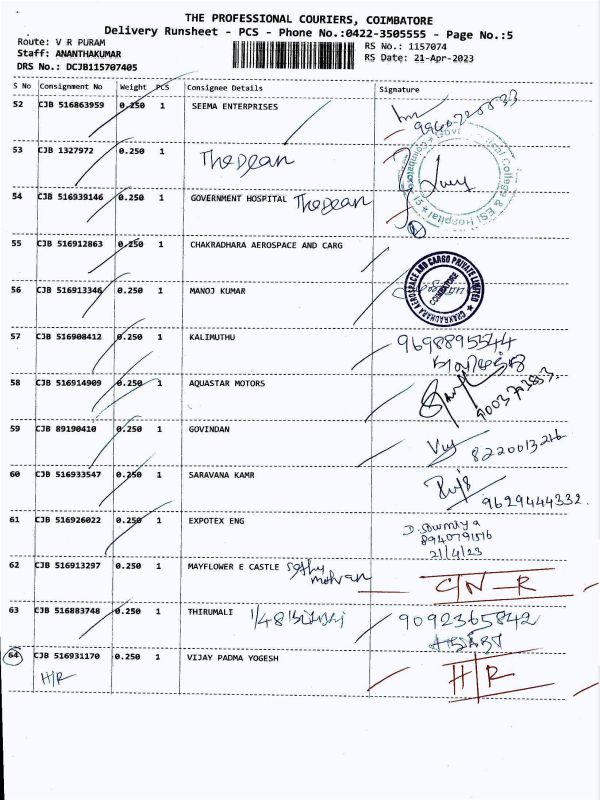 THE PROFESSIONAL COURIERS, COIMBATORE
Delivery Runsheet - PCS - Phone No.:0422-3505555 - Page No.:5
Route: V R PURAM
RS No.: 1157074
Staff: ANANTHAKUMAR
RS Date: 21-Apr-2023
DRS No.: DCJB115707405
S No Consignment No Weight PCS Consignee Details Signature
52 CJB 516863959 0.250 1 SEEMA ENTERPRISES
53 CJB 1327972 0.250 1 The Dean
54 CJB 516939146 0.250 1 GOVERNMENT HOSPITAL The Dean
College & ESI Hospital
55 CJB 516912863 0.250 1 CHAKRADHARA AEROSPACE AND CARG
CHAKRADHARA AEROSPACE AND CARGO PRIVATE LIMITED
COIMBATORE
56 CJB 516913346 0.250 1 MANOJ KUMAR
57 CJB 516908412 0.250 1 KALIMUTHU 9698895544
58 CJB 516914909 0.250 1 AQUASTAR MOTORS
59 CJB 89190410 0.250 1 GOVINDAN 8220013216
60 CJB 516933547 0.250 1 SARAVANA KAMR
9629444332.
61 CJB 516926022 0.250 1 EXPOTEX ENG D. Sowmiya
8940791516
21/4/23
62 CJB 516913297 0.250 1 MAYFLOWER E CASTLE Sathy
mohran
C/N-R
63 CJB 516883748 0.250 1 THIRUMALI 1/48 9092365842
64 CJB 516931170 0.250 1 VIJAY PADMA YOGESH
H/R H/R